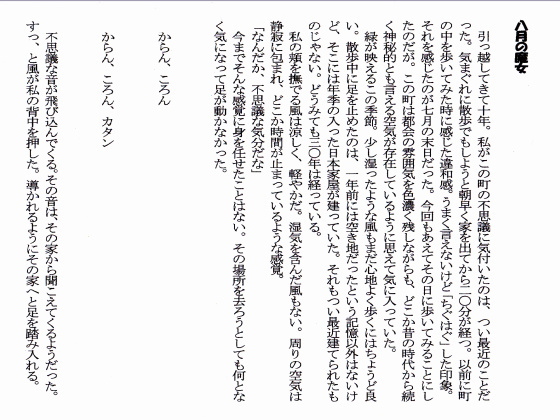 八月の魔女
　引っ越してきて十年。私がこの町の不思議に気付いたのは、つい最近のことだ
った。気まぐれに散歩でもしようと朝早く家を出てから二〇分が経つ。以前に町
の中を歩いてみた時に感じた違和感。うまく言えないけど「ちぐはぐ」した印象。
それを感じたのが七月の末日だった。今回もあえてその日に歩いてみることにし
たのだが。この町は都会の雰囲気を色濃く残しながらも、どこか昔の時代から続
く神秘的とも言える空気が存在しているように思えて気に入っていた。
　緑が映えるこの季節。少し湿ったような風もまだ心地よく歩くにはちょうど良
い。散歩中に足を止めたのは、一年前には空き地だったという記憶以外はないけ
ど、そこには年季の入った日本家屋が建っていた。それもつい最近建てられたも
のじゃない。どうみても三〇年は経っている。
　私の頬を撫でる風は涼しく、軽やかだ。湿気を含んだ風もない。周りの空気は
静寂に包まれ、どこか時間が止まっているような感覚。
「なんだか、不思議な気分だな」
　今までそんな感覚に身を任せたことはない。その場所を去ろうとしても何とな
く気になって足が動かなかった。
からん、ころん
からん、ころん、カタン
　不思議な音が飛び込んでくる。その音は、その家から聞こえてくるようだった。
すっ、と風が私の背中を押した。導かれるようにその家へと足を踏み入れる。